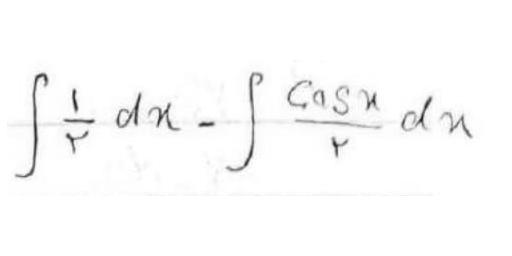 ∫ ۱/۲ dx - ∫ cosx/۲ dx